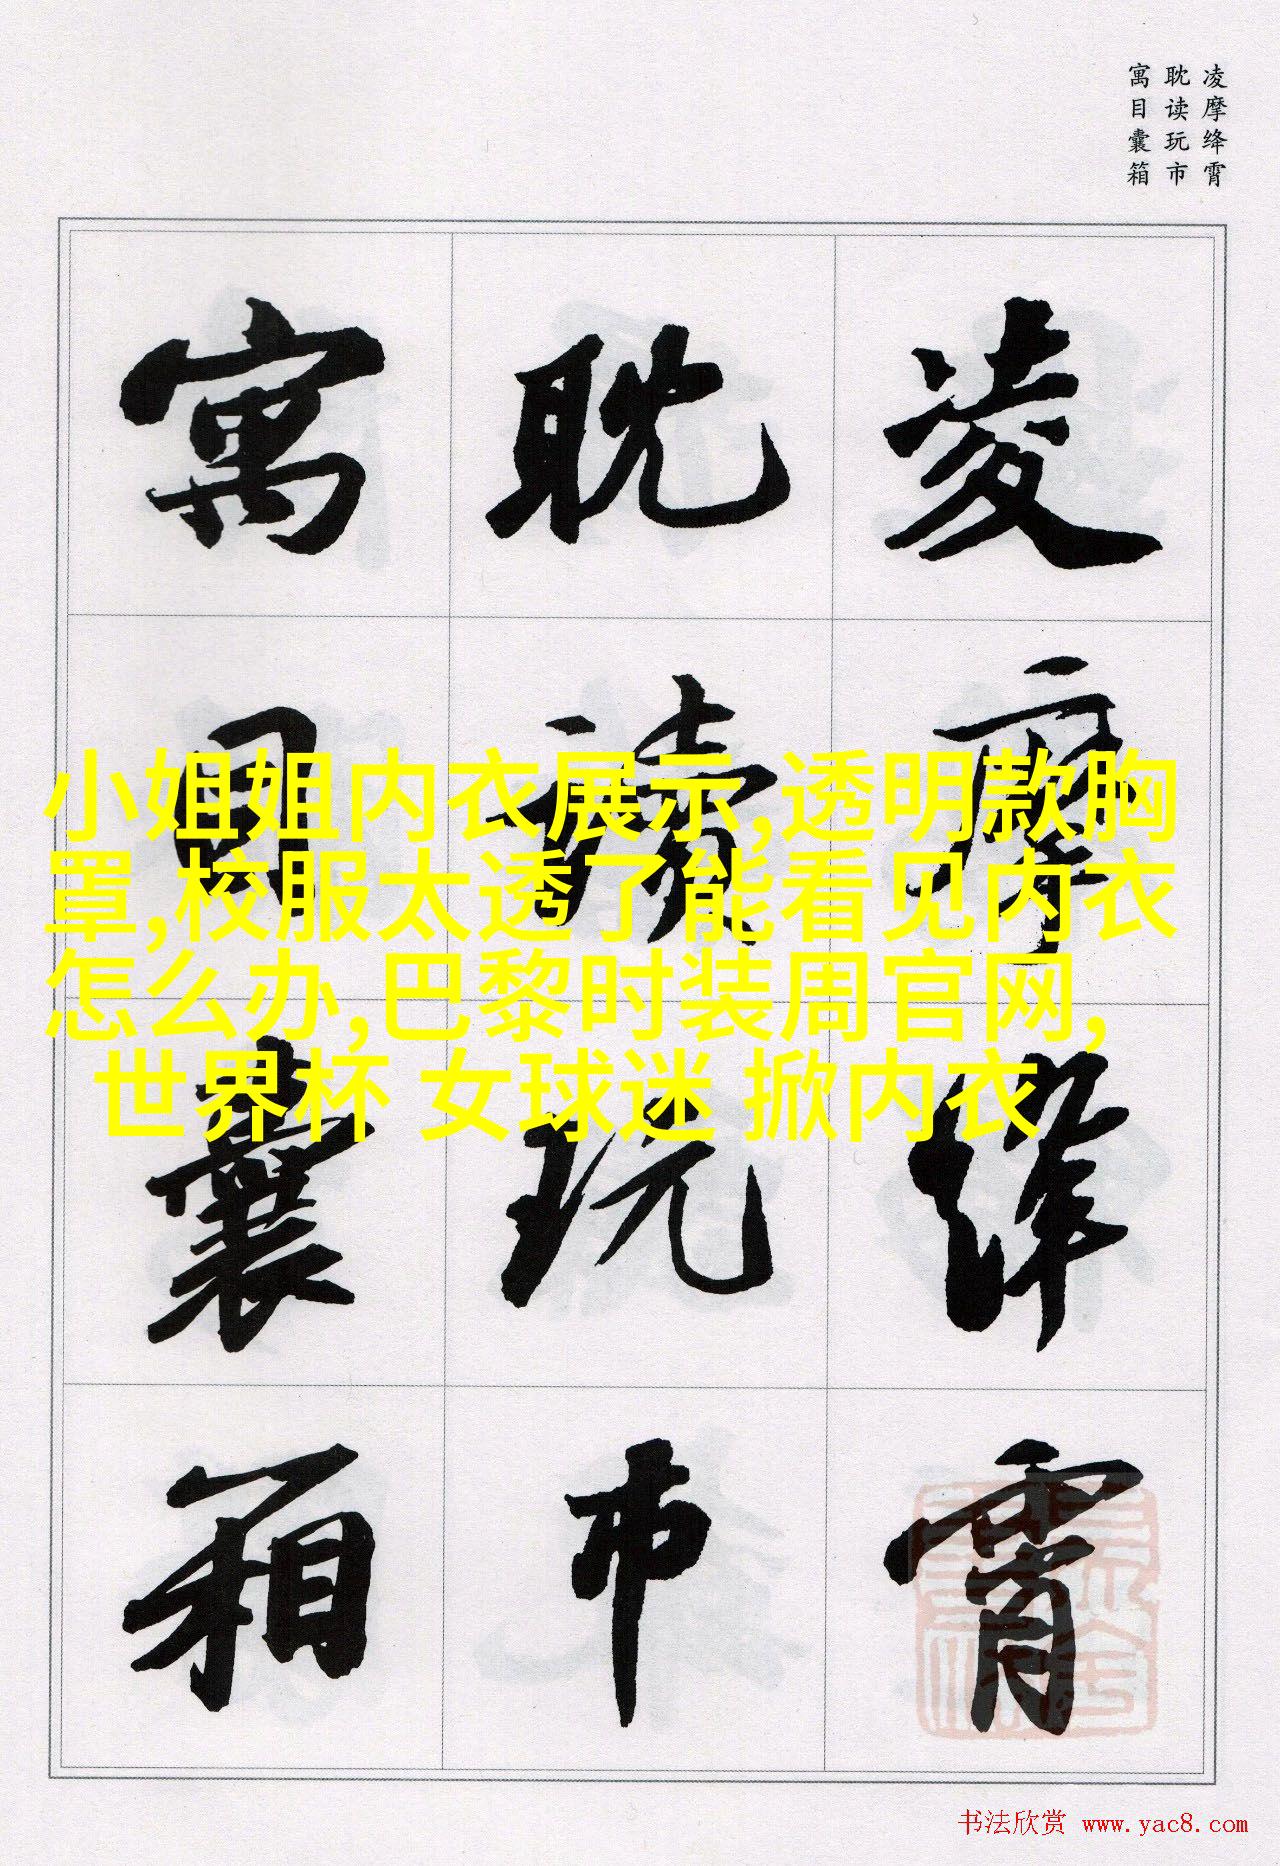 凌摩绛霄
耽读玩市
寓目囊箱
凌摩绛霄
耽读玩市
寓目囊箱
小姐姐内衣展示,透明款胸
罩,校服太透了能看见内衣
怎么办,巴黎时装周官网,
世界杯 女球迷 掀内衣
书法欣赏 www.yac8.com